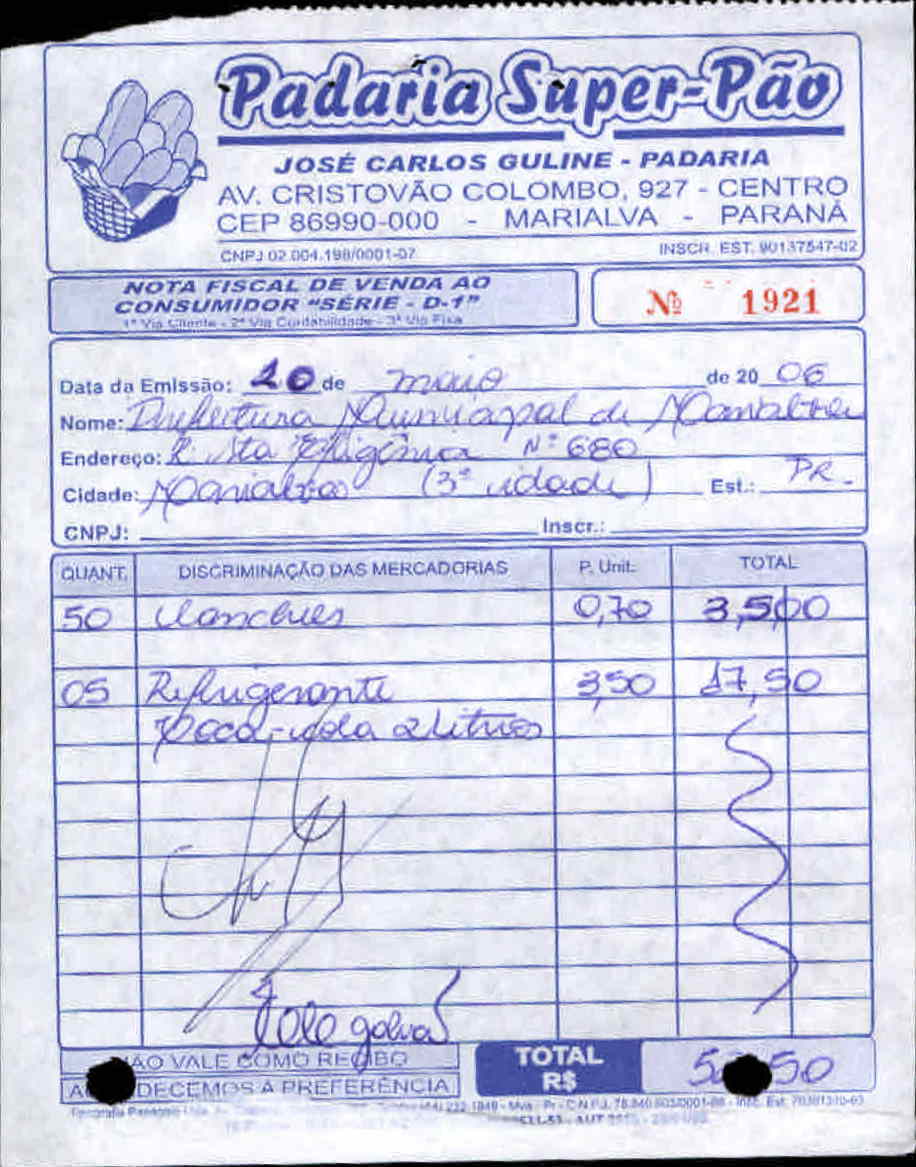 Padaria Super-Pão
JOSÉ CARLOS GULINE - PADARIA
AV. CRISTOVÃO COLOMBO, 927 - CENTRO
CEP 86990-000 - MARIALVA - PARANÁ
CNPJ 02.004.198/0001-07 INSCR. EST. 90137547-02
NOTA FISCAL DE VENDA AO
CONSUMIDOR "SÉRIE - D-1"
1ª Via Cliente - 2ª Via Contabilidade - 3ª Via Fixa
Nº 1921
Data da Emissão: 20 de maio de 2006
Nome: Prefeitura Municipal de Marialva
Endereço: R. Sta Efigênia Nº 680
Cidade: Marialva (3ª idade) Est.: PR.
CNPJ: Inscr.:
QUANT. DISCRIMINAÇÃO DAS MERCADORIAS P. Unit. TOTAL
50 Lanches 0,70 3,500
05 Refrigerante 3,50 17,50
Coca-cola 2 litros
NÃO VALE COMO RECIBO
DECEMOS A PREFERÊNCIA
TOTAL
R$ 5 50